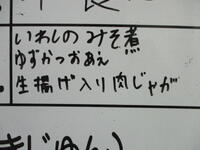 いわしのみそ煮
ゆずかつおあえ
生揚げ入り肉じゃが
きじゅん)